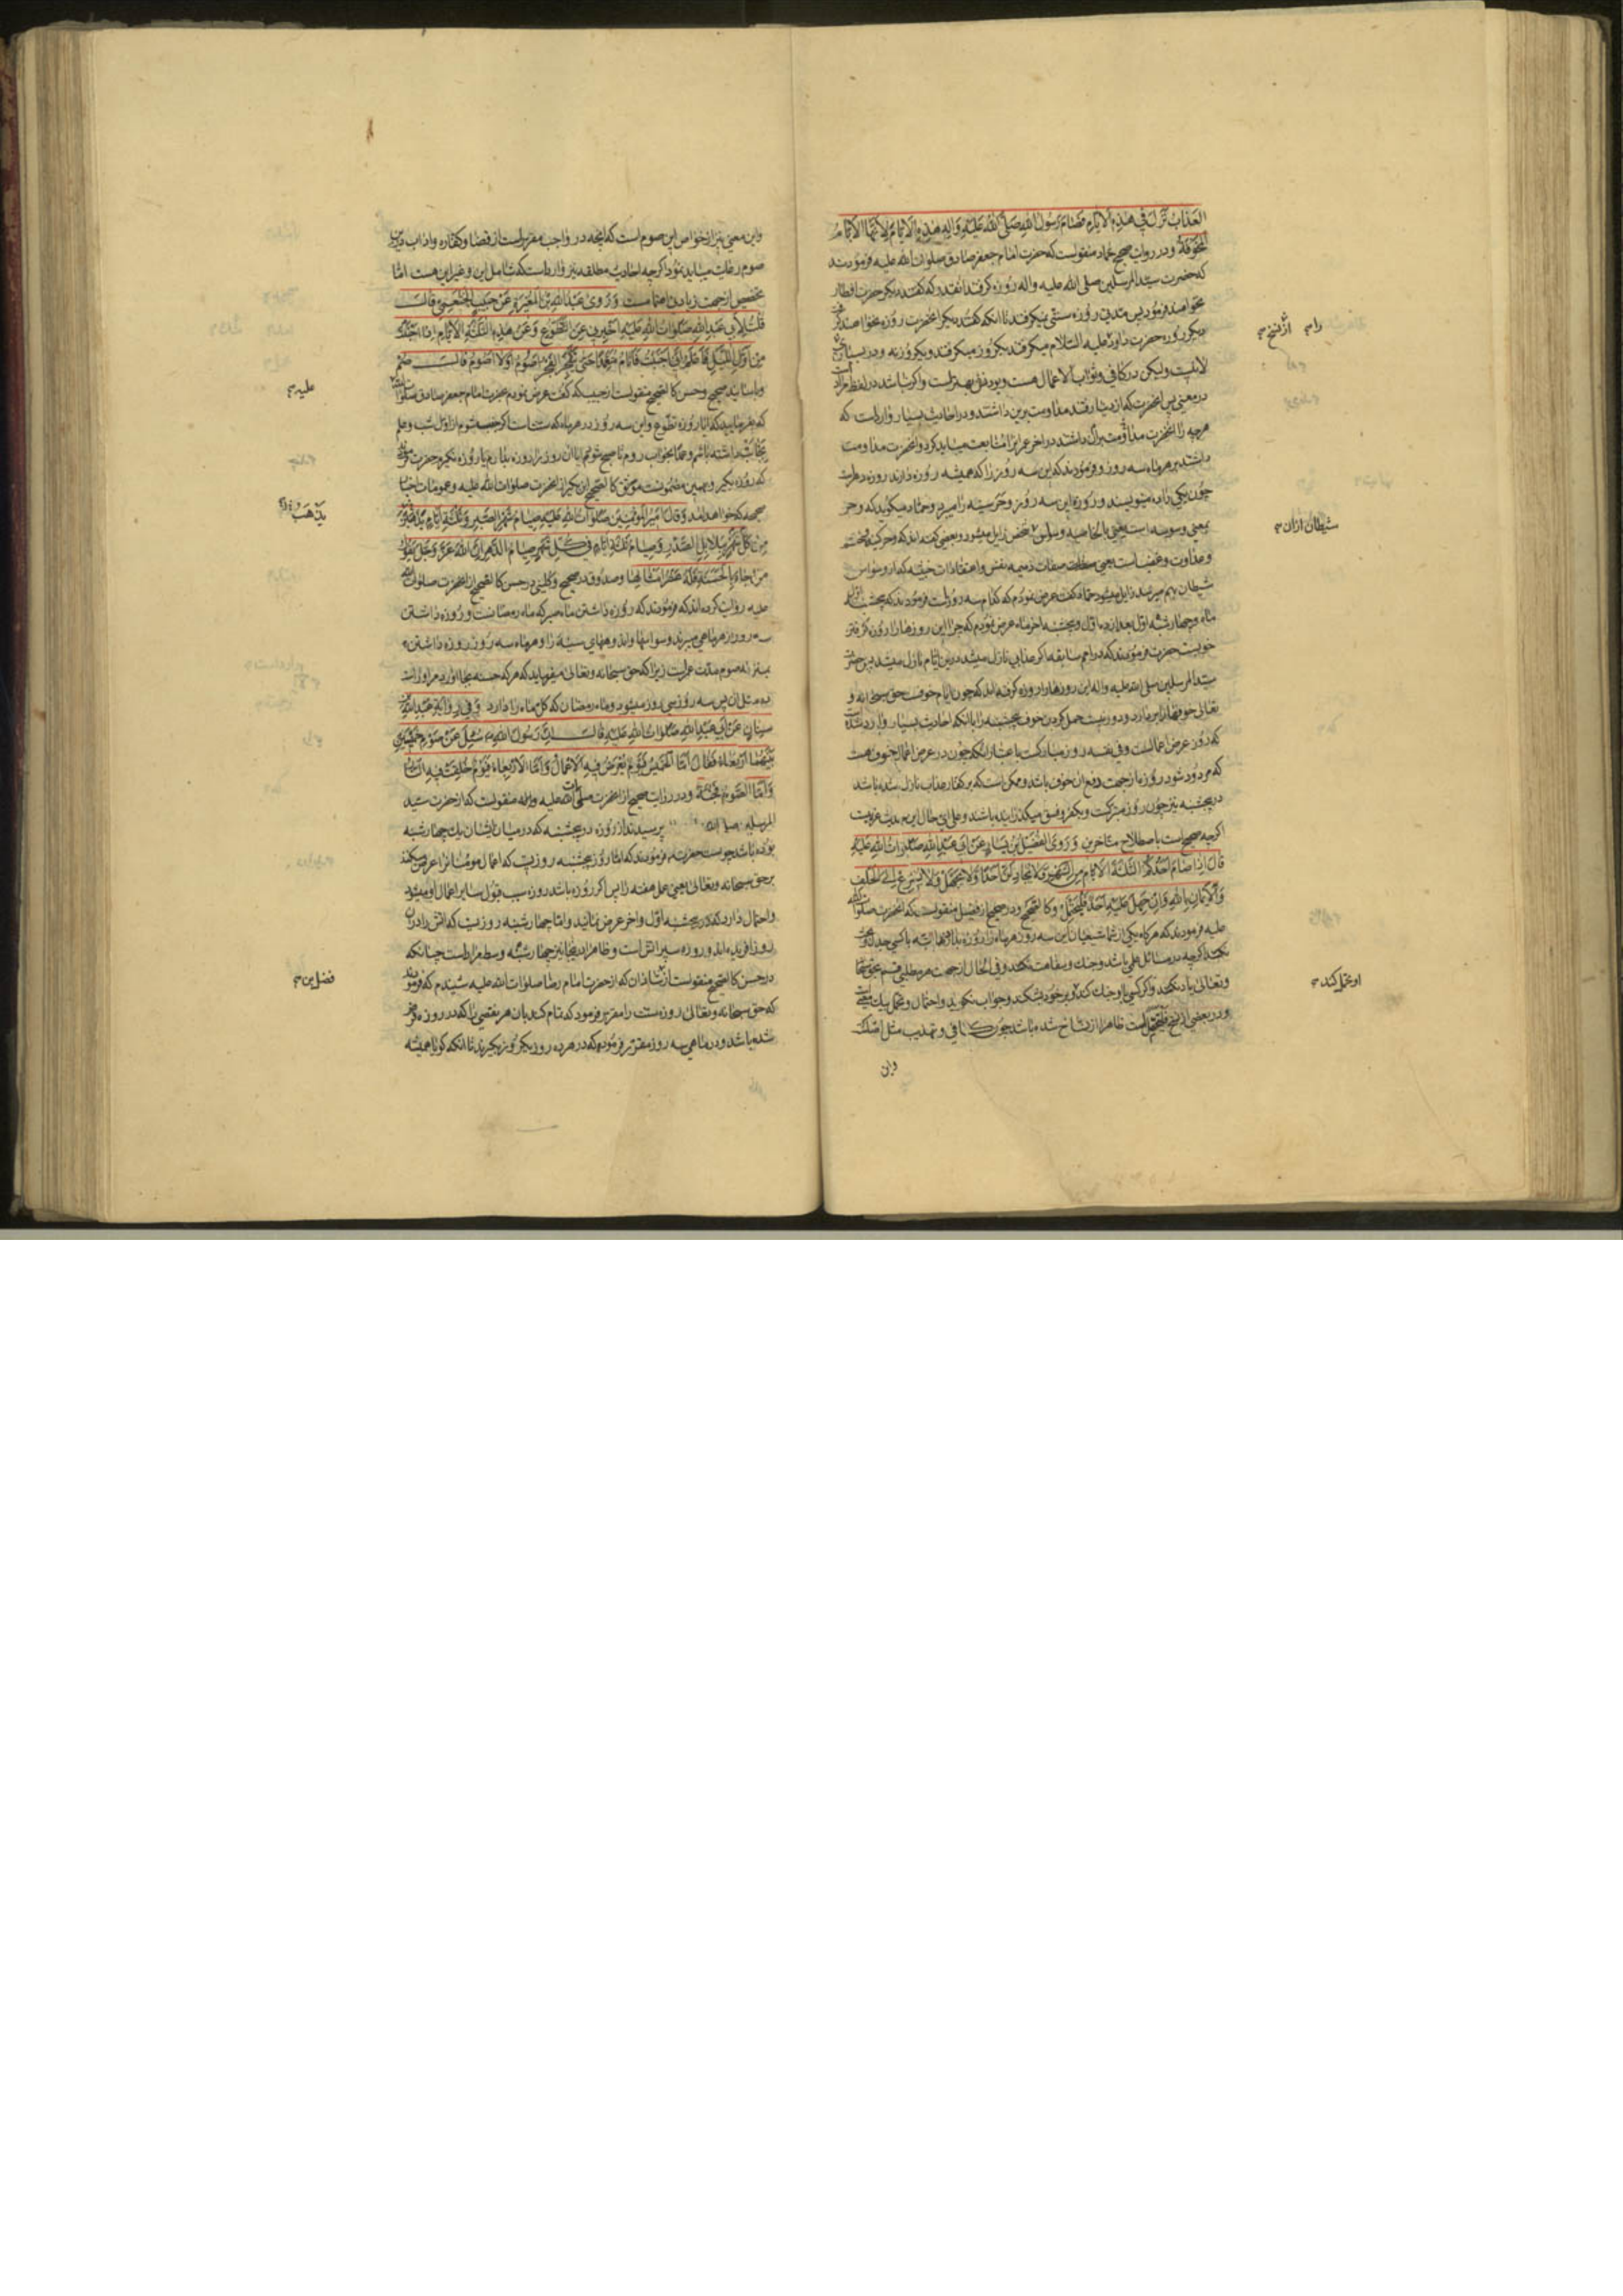 العذاب نزل في هذه الايام فصام رسول الله صلى الله عليه واله هذه الايام لانها الايام
المخوفة ودر روايت صحيح حماد منقولست كه حضرت امام جعفر صادق صلوات الله عليه فرمودند
كه حضرت سيد المرسلين صلى الله عليه واله روزه گرفتند تا گفتند كه ديگر حضرت افطار
نخواهند فرمود پس مدتى روزه سنتى نميگرفتند تا انكه گفتند ديگر انحضرت روزه نخواهند گرفت
ديگر روزه حضرت داود عليه السلام ميگرفتند يكروز ميگرفتند ويكروز نه ودر بسيارى
وليكن در كافي وثواب الاعمال هست وبودنش بهتر است واگر نباشد در لفظ مراد است
در معنى پس انحضرت كه از دنيا رفتند مداومت برين داشتند ودر احاديث بسيار وارد است كه
هرچه را انحضرت مداومت بران داشتند در اخر عمر انرا متابعت ميبايد كرد وانحضرت مداومت
داشتند بر هر ماه سه روز وفرمودند كه اين سه روز را كه هميشه روزه دارند روزه دهر است
چون يكى را ده مينويسند وروزه اين سه روز وحر سينه را ميبرد وحماد ميگويد كه وحر
بمعنى وسوسه است يعنى بالخاصيه وسواس زايل ميشود وبعضى گفته اند كه وحر كينه وخشم
وعداوت وغضب است يعنى صفات ذميمه نفس واعتقادات خبيثه كه از وسواس
شيطان بهم ميرسد زايل ميشود حماد گفت عرض نمودم كه كدام سه روز است فرمودند كه پنجشنبه اول
ماه وچهارشنبه اول بعد از ده اول وپنجشنبه اخر ماه عرض نمودم كه چرا اين روزها را روزه گرفتن
خوبست حضرت فرمودند كه در امم سابقه اگر عذابى نازل ميشد درين ايام نازل ميشد پس حضرت
سيد المرسلين صلى الله عليه واله اين روزها را روزه گرفته اند كه چون ايام خوفست حق سبحانه و
تعالى خوفها را بردارد ودور نيست حمل كردن خوف پنجشنبه را با انكه احاديث بسيار وارد شده است
كه روز عرض اعمالست وفي نفسه روز مباركست باعتبار انكه چون در عرض اعمال خوف هست
كه مردود شود روزه از جهت دفع ان خوف باشد وممكن است كه بر كفار عذاب نازل شده باشد
در پنجشنبه نيز چون روز متبركست وبكفر وفسق ميگذرانيده باشند وعلى اى حال اين حديث
اگرچه صحيح است باصطلاح متاخرين وروى الفضيل بن يسار عن ابي عبد الله صلوات الله عليه
قال اذا صام احدكم الثلثة الايام من الشهر فلا يجادلن احدا ولا يجهل ولا يسرع الى الحلف
والايمان بالله وان جهل عليه احد فليحتمل وكالصحيح ودر صحيح از فضيل منقولست كه انحضرت صلوات الله
عليه فرمودند كه هرگاه يكى از شما شيعيان اين سه روز هر ماه را روزه بدارد البته با كسى جدل وبحث
نكند اگرچه در مسائل علمى باشد وجنك وسفاهت نكند وفي الحال از جهت هر مطلبى قسم بحق سبحانه
وتعالى ياد نكند واگر كسى با او جنك كند بر خود بشكند وجواب نگويد واحتمال وتحمل بيك معنى است
ودر بعضى از نسخ فليتحمل است ظاهرا از نساخ شده باشد چون كافي وتهذيب مثل اصلست
واين
را
از نسخ
شيطان ازان
او تحمل كند
واين معنى نيز از خواص اين صوم است كه انچه در واجب مقرر است از قضا وكفاره واداب درين
صوم رعايت ميبايد نمود اگرچه احاديث مطلقه نيز وارد است كه شامل اين وغير اين هست اما
تخصيص از جهت زيادتى اهتمامست وروى عبد الله بن المغيرة عن حبيب الخثعمي قال
قلت لابي عبد الله صلوات الله عليه اخبرني عن التطوع وعن هذه الثلثة الايام اذا اجنبت
من اول الليل فاعلم اني اجنبت فانام متعمدا حتى ينفجر الفجر اصوم اولا اصوم قال صم
وباسانيد صحيح وحسن كالصحيح منقولست از حبيب كه گفت عرض نمودم بحضرت امام جعفر صادق صلوات الله
كه بفرماييد كه ايا روزه تطوع واين سه روز در هر ماه كه سنت است اگر جنب شوم از اول شب وعلم
بجنابت داشته باشم وعمدا بخواب روم تا صبح شود ايا ان روز را روزه بدارم يا روزه نگيرم حضرت فرمودند
كه روزه بگير وبهمين مضمونست موثق كالصحيح ابن بكير از انحضرت صلوات الله عليه وعمومات اخبار
صحيحه كه خواهد امد وقال امير المؤمنين صلوات الله عليه صيام شهر الصبر وثلثة ايام
من كل شهر ببلابل الصدر وصيام ثلثة ايام في كل شهر صيام الدهر ان الله عز وجل يقول
من جاء بالحسنة فله عشر امثالها وصدوق در صحيح وكليني در حسن كالصحيح از انحضرت صلوات الله
عليه روايت كرده اند كه فرمودند كه روزه داشتن ماه صبر كه ماه رمضانست وروزه داشتن
سه روز از هر ماهى ميبرند وسواسها واندوههاى سينه را وهر ماه سه روز روزه داشتن
بمنزله صوم مدت عمر است زيرا كه حق سبحانه وتعالى ميفرمايد كه هر كه حسنه بجا اورد مر او راست
ده مثل ان پس سه روز سى روز ميشود وماه رمضان كه كل ماه را دارد وفي رواية عبد الله بن
سنان عن ابي عبد الله صلوات الله عليه قال ان رسول الله ص سئل عن صوم خميسين
بينهما اربعاء فقال اما الخميس فيوم يعرض فيه الاعمال واما الاربعاء فيوم خلقت فيه النار
واما الصوم فجنة ودر روايت صحيح از انحضرت صلوات الله عليه منقولست كه از حضرت سيد
المرسلين پرسيدند از روزه دو پنجشنبه كه در ميان ايشان يك چهارشنبه
بوده باشد چونست حضرت فرمودند كه اما روز پنجشنبه روزيست كه اعمال مومنانرا عرض ميكنند
بر حق سبحانه وتعالى يعنى عمل هفته را پس اگر روزه باشد روزه سبب قبول ساير اعمال او ميشود
واحتمال دارد كه در پنجشنبه اول واخر عرض نمايند واما چهارشنبه روزيست كه اتش را دران
روز افريده اند وروزه سپر اتش است وظاهرا در اينجا نيز چهارشنبه وسط مراد است چنانكه
در حسن كالصحيح منقولست از شاذان كه از حضرت امام رضا صلوات الله عليه شنيدم كه فرمودند
كه حق سبحانه وتعالى روزه سنت را مقرر فرمود كه تمام كند بان هر نقصى را كه در روزه فرض
شده باشد ودر ماهى سه روز مقرر فرموده كه در هر ده روز يكروز بگيرند تا انكه گويا هميشه
عليه
يذهبن
فضل بن